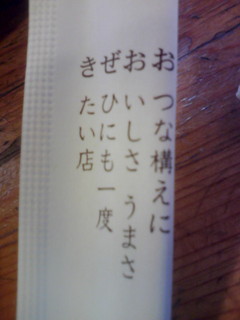 おつな構えに
おいしさ うまさ
ぜひにも一度
きたい店